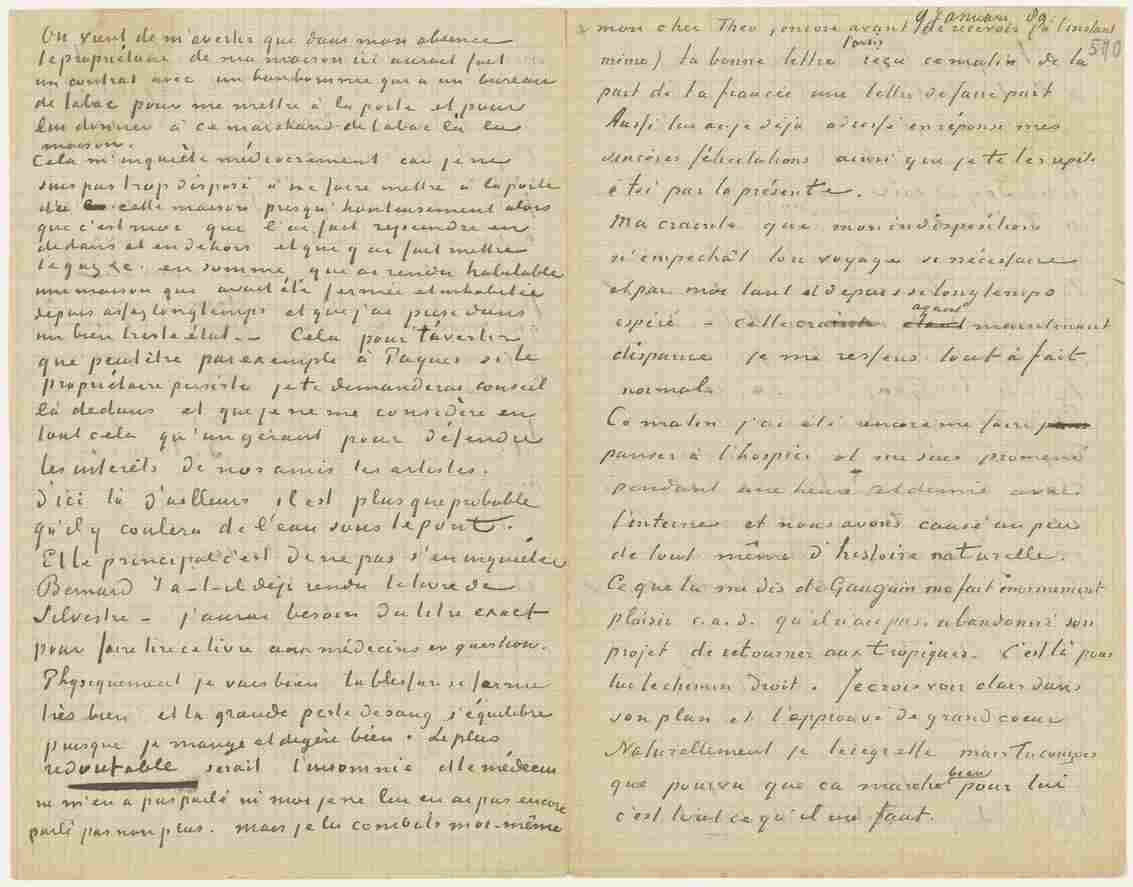 On vient de m'avertir que dans mon absence
le propriétaire de ma maison ici aurait fait
un contrat avec un bonhomme qui a un bureau
de tabac pour me mettre à la porte et pour
lui donner à ce marchand de tabac là la
maison.
Cela m'inquiète médiocrement car je ne
suis pas trop disposé à me faire mettre à la porte
de cette maison presqu'honteusement alors
que c'est moi qui l'ai fait repeindre en
dedans et en dehors et qui y ai fait mettre
le gaz &c. en somme qui ai rendu habitable
une maison qui avait été fermée et inhabitée
depuis assez longtemps et que j'ai prise dans
un bien triste état.- Cela pour t'avertir
que peutêtre par exemple à Paques si le
propriétaire persiste je te demanderai conseil
là dedans et que je ne me considère en
tout cela qu'un gérant pour défendre
les intérêts de nos amis les artistes.
D'ici là d'ailleurs il est plus que probable
qu'il y coulera de l'eau sous le pont.
Et le principal c'est de ne pas s'en inquiéter
Bernard t'a-t-il déjà rendu le livre de
Silvestre – j'aurai besoin du titre exact
pour faire lire ce livre aux médecins en question.
Physiquement je vais bien la blessure se ferme
très bien et la grande perte de sang s'équilibre
puisque je mange et digère bien. Le plus
redoutable serait l'insomnie et le médecin
ne m'en a pas parlé ni moi je ne lui en ai pas encore
parlé pas non plus. mais je la combats moi-même
9 Januari 89
mon cher Theo, encore avant de recevoir (à l'instant
590
même) ta bonne lettre j'avais reçu ce matin de la
part de ta fiancée une lettre de faire part
Aussi lui ai-je déjà adressé en réponse mes
sincères félicitations ainsi que je te les repète
à toi par la présente.
Ma crainte que mon indisposition
n'empechât ton voyage si nécessaire
et par moi tant et depuis si longtemps
espéré – cette crainte ayant maintenant
disparue je me ressens tout à fait
normal.
Ce matin j'ai été encore me faire
panser à l'hospice et me suis promené
pendant une heure et demie avec
l'interne et nous avons causé un peu
de tout même d'histoire naturelle.
Ce que tu me dis de Gauguin me fait énormement
plaisir c.a.d. qu'il n'ai pas abandonné son
projet de retourner aux tropiques. C'est là pour
lui le chemin droit. Je crois voir clair dans
son plan et l'approuve de grand coeur
Naturellement je le regrette mais tu conçois
que pourvu que ça marche bien pour lui
c'est tout ce qu'il me faut.